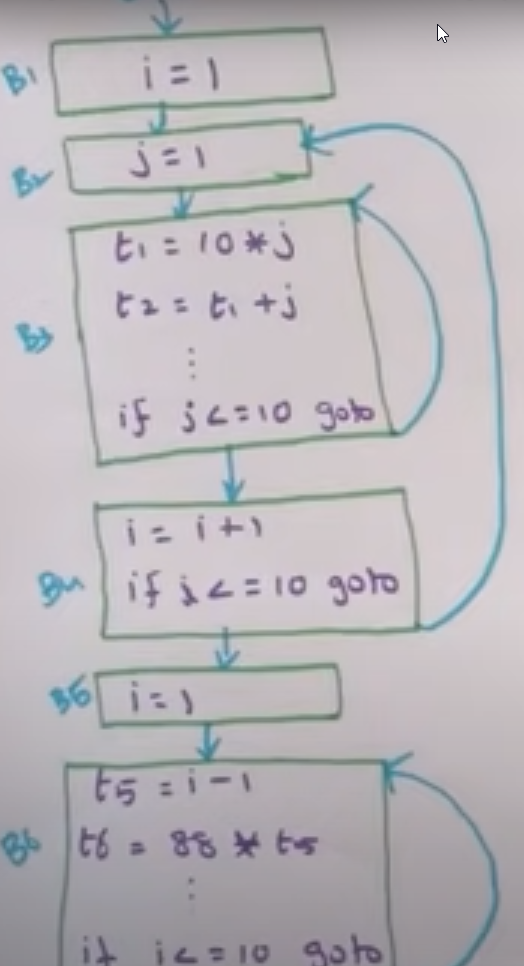 B1
i = 1
B2
j = 1
B3
t1 = 10 * j
t2 = t1 + j
⋮
if j <= 10 goto
B4
i = i + 1
if j <= 10 goto
B5
i = 1
B6
t5 = i - 1
t6 = 88 * t5
⋮
if i <= 10 goto